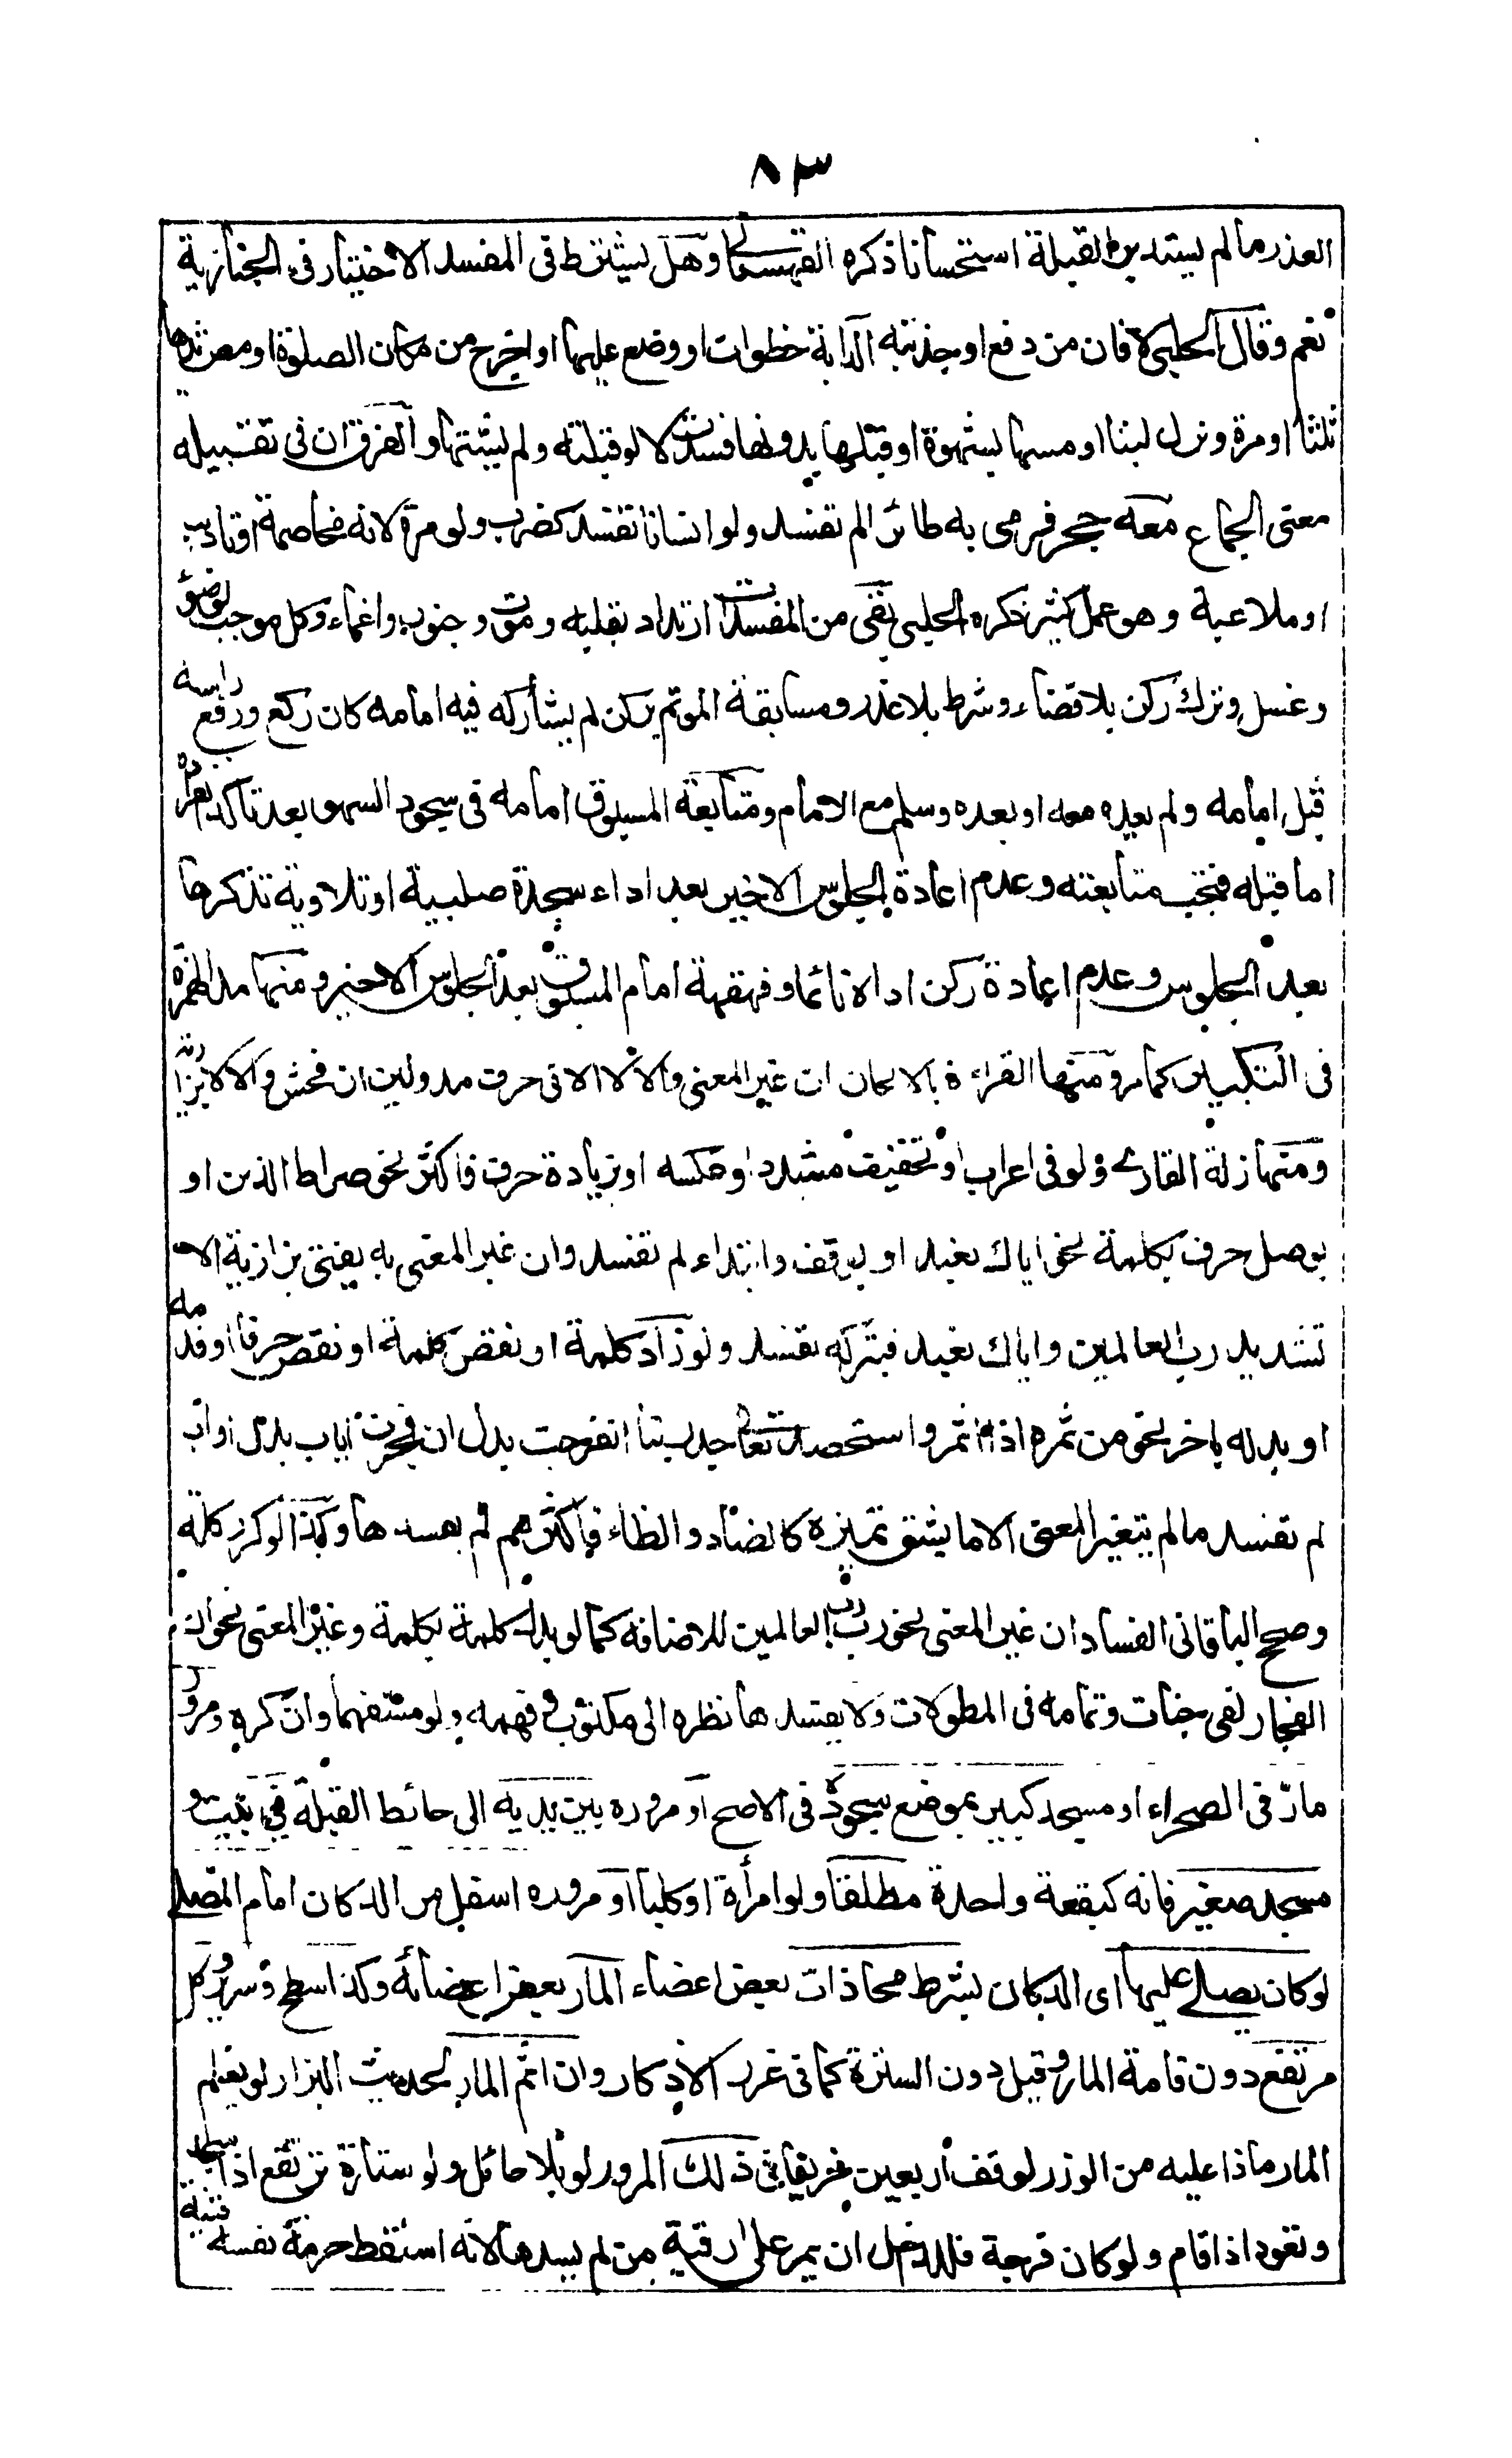 ٨٣
العذر ما لم يستدبر القبلة استحسانا ذكره القهستاني وهل يشترط في المفسد الاختيار في الخبازية
نعم وقال الحلبي لا فان من دفع او جذبته الدابة خطوات او وضع عليها او اخرج من مكان الصلوة او مص ثديها
ثلثا او مرة ونزل لبنا او مسها بشهوة او قبلها بدونها فسدت لا لو قبلته ولم يشتهها والفرق ان في تقبيله
معنى الجماع معه حجر فرمى به طائرا لم تفسد ولو انسانا تفسد كضرب ولو مرة لانه مخاصمة او تاديب
او ملاعبة وهو عمل كثير ذكره الحلبي بقي من المفسدات ارتداد بقلبه وموت وجنون واغماء وكل موجب لوضوء
وغسل وترك ركن بلا قضاء وشرط بلا عذر ومسابقة الموتم بركن لم يشاركه فيه امامه كان ركع ورفع راسه
قبل امامه ولم يعده معه او بعده وسلم مع الامام ومتابعة المسبوق امامه في سجود السهو بعد تاكد انفراده
اما قبله فتجب متابعته وعدم اعادة الجلوس الاخير بعد اداء سجدة صلبية او تلاوية تذكرها
بعد الجلوس وعدم اعادة ركن اداه نائما وقهقهة امام المسبوق بعد الجلوس الاخير ومنها مد الهمزة
في التكبير كما مر ومنها القراءة بالالحان ان غير المعنى والا لا الا في حرف مد ولين ان فحش والا لا بزازية
ومنها زلة القاري ولو في اعراب او تخفيف مشدد او عكسه او زيادة حرف فاكثر نحو صراط الذين او
بوصل حرف بكلمة نحو اياك نعبد او بوقف وابتداء لم تفسد وان غير المعنى به يفتى بزازية الا
تشديد رب العالمين واياك نعبد فبتركه تفسد ولو زاد كلمة او نقص كلمة او نقص حرفا او قدمه
او بدله باخر نحو من ثمره اذا اثمر واستحصد تعالى جد ربنا انفرجت بدل انفجرت اياب بدل اواب
لم تفسد ما لم يتغير المعنى الا ما يشق تميزه كالضاد والظاء فاكثرهم لم يفسدها وكذا لو كرر كلمة
وصحح الباقاني الفساد ان غير المعنى نحو رب رب العالمين للاضافة كما لو بدل كلمة بكلمة وغير المعنى نحو ان
الفجار لفي جنات وتمامه في المطولات ولا يفسدها نظره الى مكتوب وفهمه ولو مستفهما وان كره ومرور
مار في الصحراء او مسجد كبير بموضع سجوده في الاصح او مروره بين يديه الى حائط القبلة في بيت و
مسجد صغير فانه كبقعة واحدة مطلقا ولو امرأة او كلبا او مروره اسفل من الدكان امام المصلي
لو كان يصلي عليها اى الدكان بشرط محاذات بعض اعضاء المار بعض اعضائه وكذا سطح وسرير وكل
مرتفع دون قامة المار وقيل دون السترة كما في غرر الاذكار وان اثم المار لحديث البزار لو يعلم
المار ماذا عليه من الوزر لوقف اربعين خريفا في ذلك المرور لو بلا حائل ولو ستارة ترتفع اذا سجد
وتعود اذا قام ولو كان فرجة فللداخل ان يمر على رقبة من لم يسدها لانه اسقط حرمة نفسه فتنبه